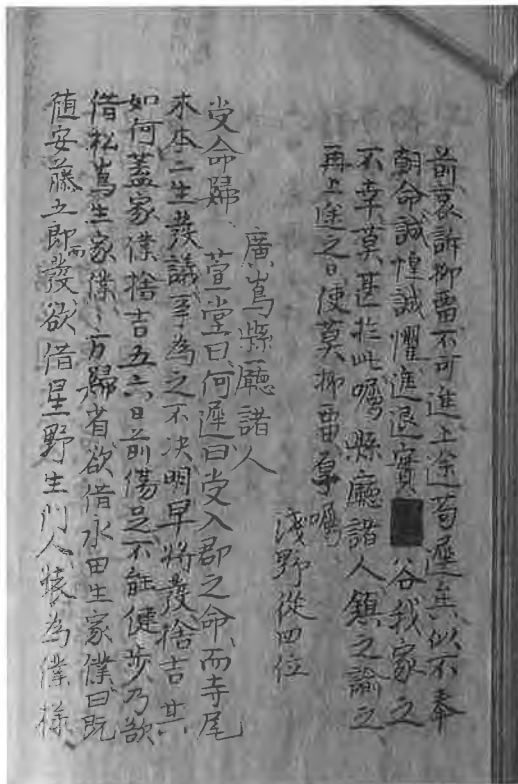 前、哀訴抑留、不可進上途、苟遲至、似不奉
朝命、誠惶誠懼、進退實谷、我家之
不幸、莫甚於此、囑縣廳諸人、鎮之諭之、
再上途之日、使莫抑留、囑
淺野從四位
廣嶌縣廳諸人
受命歸、萱堂曰、何遲、曰、受入郡之命、而寺尾
木本二生發議、爭為之不決、明早將發、捨吉其
如何、蓋家僕捨吉五六日前傷足、不能健步、乃欲
借松嶌生家僕、〻方歸省、欲借水田生家僕、曰既
随安藤五郎而發、欲借星野生門人、裝為僕様